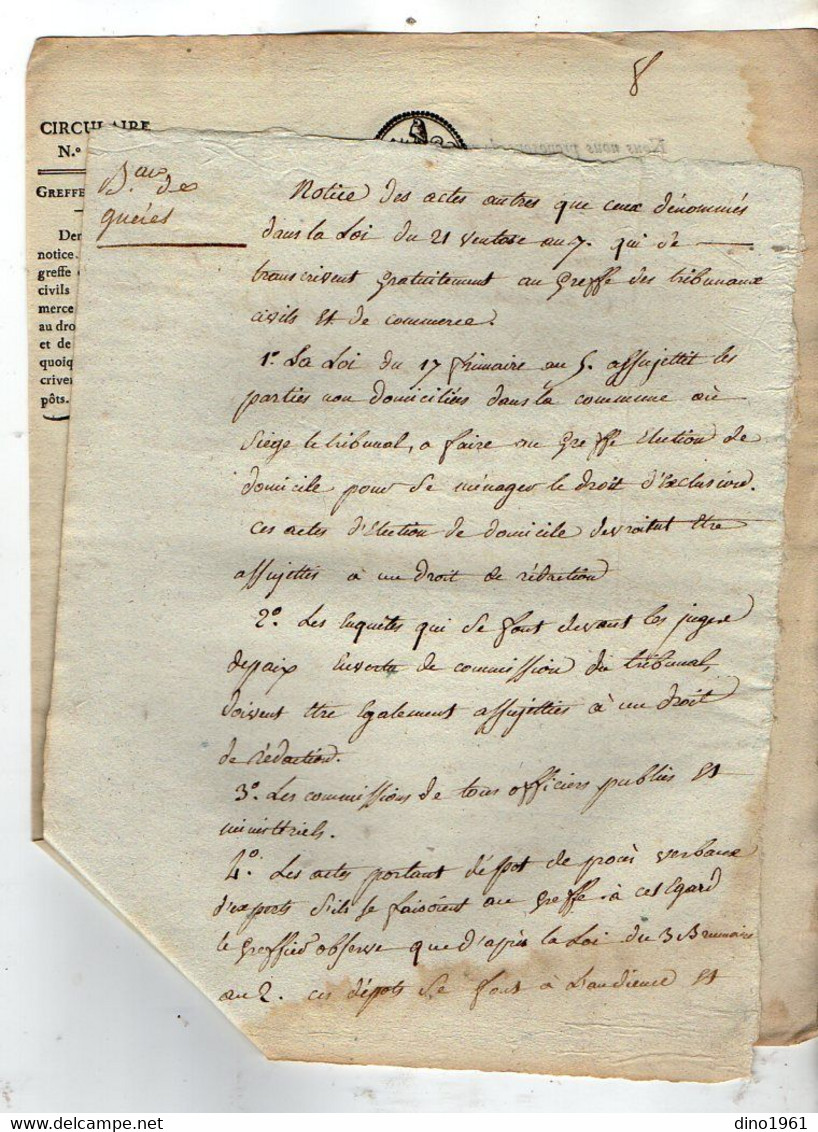 8
CIRCULAIRE
N.º
GREFFE
notice
greffe
civils
merce
au dro
et de
quoiq
criven
pôts.
B.au de
guéres
Notice des actes autres que ceux dénommés
dans la Loi du 21 ventose an 7. qui se
transcrivent gratuitement au Greffe des tribunaux
civils Et de commerce.
1.º La Loi du 17 frimaire an 5. assujettit les
parties non domiciliées dans la commune où
Siège le tribunal, a faire au Greffe Election de
domicile pour se ménager le droit d'Exclusive.
Ces actes d'Election de domicile devroient Etre
assujettis a un droit de rédaction
2º. Les Enquêtes qui se font devant les juges
depaix Envertu de commission du tribunal,
doivent Etre Egalement assujetties à un droit
de rédaction.
3º. Les commissions de tous officiers publics Et
ministériels.
4º. Les actes portant dépot de procès verbaux
d'experts s'ils se faisoient au Greffe. à cet Egard
le Greffier observe que d'après la Loi du 3 Brumaire
an 2. ces dépots se font à L'audience Et
dino1961